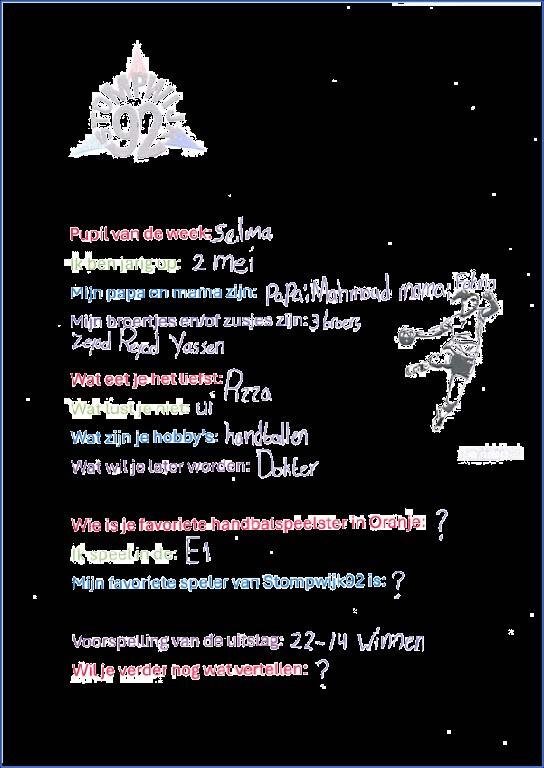 STOMPWIJK
92
Pupil van de week: Selma
Ik ben jarig op: 2 mei
Mijn papa en mama zijn: Papa: Mahmoud mama:
Mijn broertjes en/of zusjes zijn: 3 broers
Zeyad Yassen
Wat eet je het liefst: Pizza
Wat lust je niet: ui
Wat zijn je hobby's: handballen
Wat wil je later worden: Dokter
Wie is je favoriete handbalspeelster in Oranje: ?
Ik speel in de: E1
Mijn favoriete speler van Stompwijk92 is: ?
Voorspelling van de uitslag: 22-14 Winnen
Wil je verder nog wat vertellen: ?